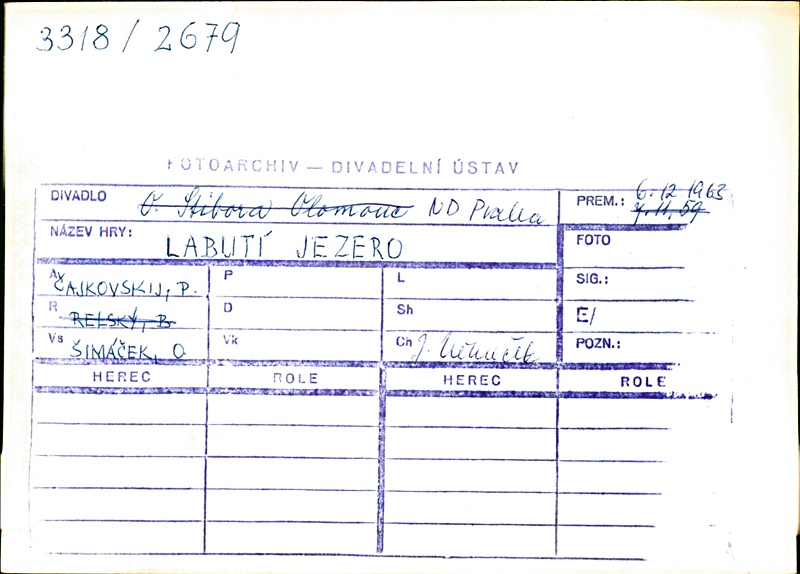 3318 / 2679
FOTOARCHIV — DIVADELNÍ ÚSTAV
DIVADLO O. Stibora Olomouc ND Praha
PREM.: 6.12 1963
7.11.59
NÁZEV HRY: LABUTÍ JEZERO
FOTO
A ČAJKOVSKIJ, P.
P
L
SIG.:
R RELSKÝ, B
D
Sh
E/
Vs ŠIMÁČEK, O
Vk
Ch J. Němeček
POZN.:
HEREC ROLE HEREC ROLE